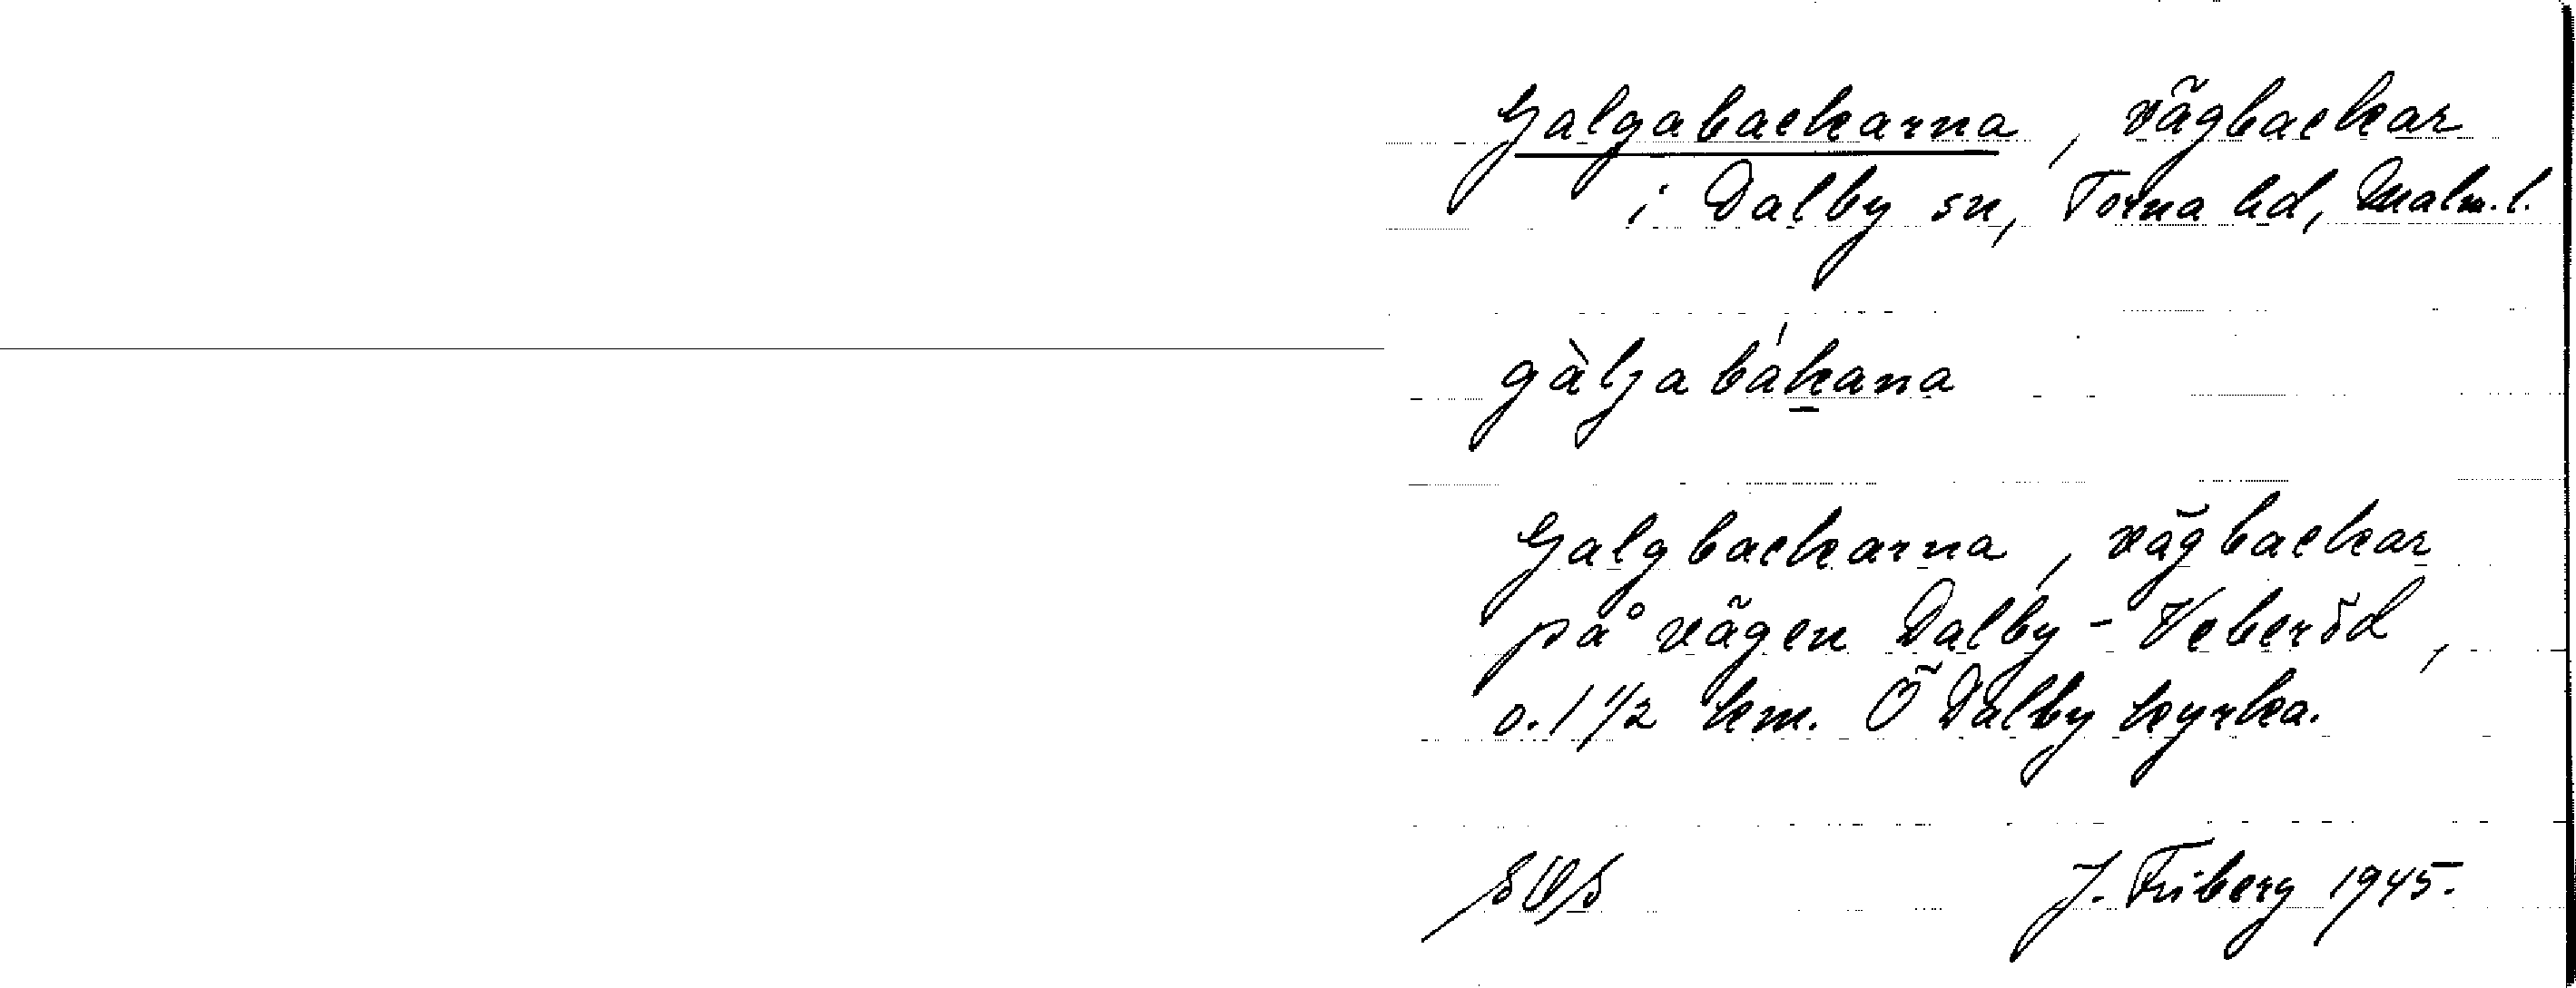 Galgabackarna, vägbackar
i Dalby sn, Torna hd, Malm. l.
gàljabákana
Galgbackarna, vägbackar
på vägen Dalby - Veberöd,
o. 1 1/2 km. Ö Dalby kyrka.
SOS J. Friberg 1945.